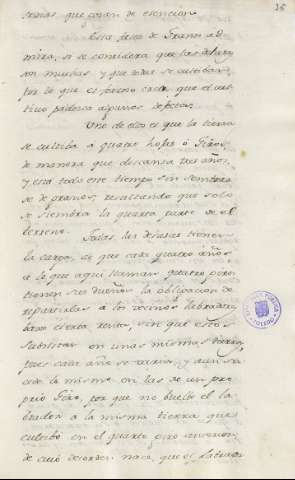 36
que gozan de esencion.
Esta falta de Granos ad
mira, si se considera que las dehesas
son muchas y que todas se cultiban
por lo que es preciso creer que el cul
tivo padezca algunos defectos.
Uno de ellos es que la tierra
se cultiba a quatro hojas ó Giros,
de manera que descansa tres años,
y està todo este tiempo sin sembrar
se de granos; resultando que solo
se siembra la quarta parte de el
terreno.
Todas las dehesas tienen
la carga, es que cada quatro años
ô lo que aqui llaman quatro giros
tienen sus dueños la obligacion de
repartirlas a los vecinos labradores
baxo cierta renta, sin que estos
subsistan en unas mismas tierras,
pues cada año se varia, y aun su
cede lo mismo en las de un pro
prio Giro, por que no buelve el la
brador a la misma tierra que
cultibó en el quarto giro anterior,
de cuio desorden nace, que el labrador
TOLEDO